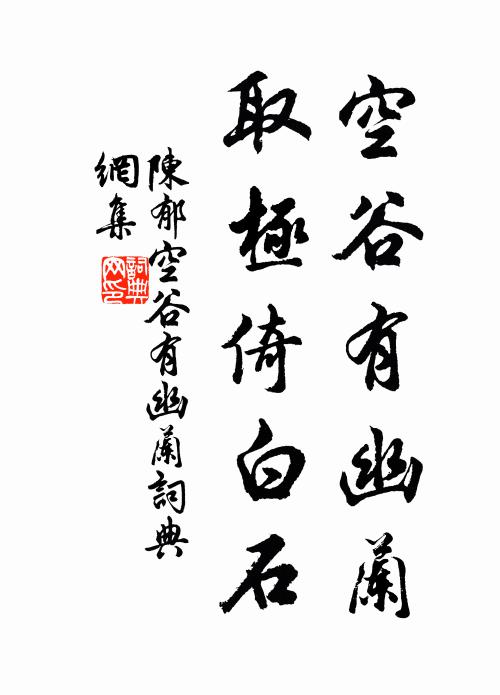 空谷有幽蘭
取極倚白石
陳郁空谷有幽蘭詞典
網集
詞典网印